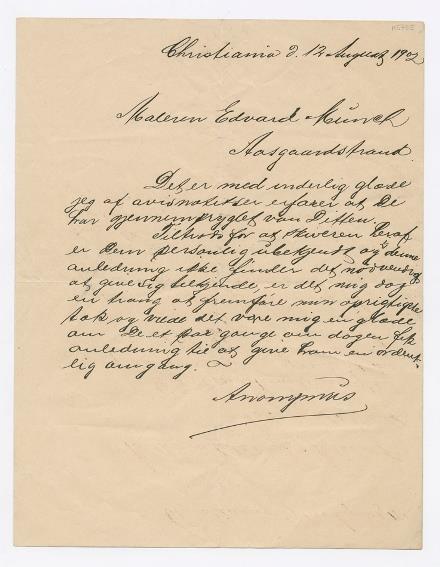 Christiania d. 12 August 1902
Maleren Edvard Munch
Aasgaardstrand.
Det er med inderlig glæde
jeg af avisnotitser erfarer at De
har gjennempryglet von Ditten.
Tiltrods for at skriveren heraf
er Dem personlig ubekjendt og i denne
anledning ikke finder det nødvendigt
at give sig tilkjende, er det mig dog
en trang at fremføre min oprigtigste
tak og vilde det være mig en glæde
om De et par gange om dagen fik
anledning til at give ham en ordent-
lig omgang.
Anonymus